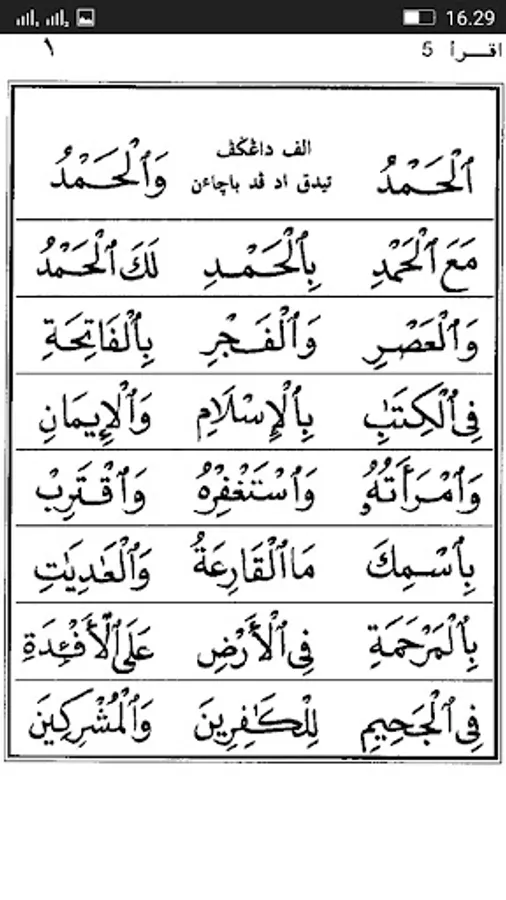 16.29
اقرأ 5 ١
ٱلْحَمْدُ الف داڠݢڤ تيدق اد ڤد باچاءن وَٱلْحَمْدُ
مَعَ ٱلْحَمْدِ بِٱلْحَمْدِ لَكَ ٱلْحَمْدُ
وَٱلْعَصْرِ وَٱلْفَجْرِ بِٱلْفَاتِحَةِ
فِى ٱلْكِتَٰبِ بِٱلْإِسْلَامِ وَٱلْإِيمَانِ
وَٱمْرَأَتُهُۥ وَٱسْتَغْفِرْهُ وَٱقْتَرِبْ
بِٱسْمِكَ مَا ٱلْقَارِعَةُ وَٱلْعَٰدِيَٰتِ
بِٱلْمَرْحَمَةِ فِى ٱلْأَرْضِ عَلَى ٱلْأَفْـِٔدَةِ
فِى ٱلْجَحِيمِ لِلْكَٰفِرِينَ وَٱلْمُشْرِكِينَ